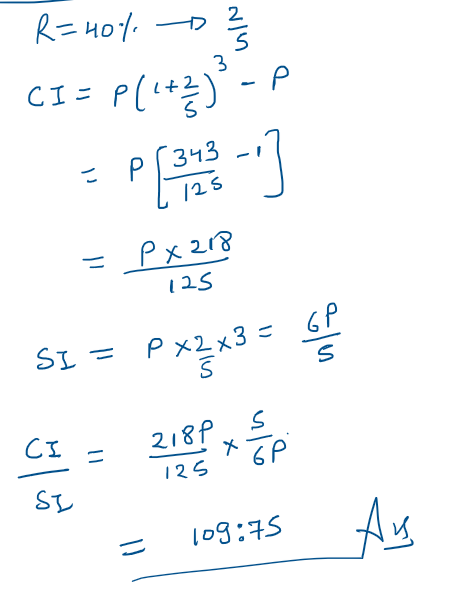 R = 40% → 2/5
CI = P(1+2/5)^3 - P
= P[343/125 - 1]
= P × 218/125
SI = P × 2/5 × 3 = 6P/5
CI/SI = 218P/125 × 5/6P
= 109:75 Ans